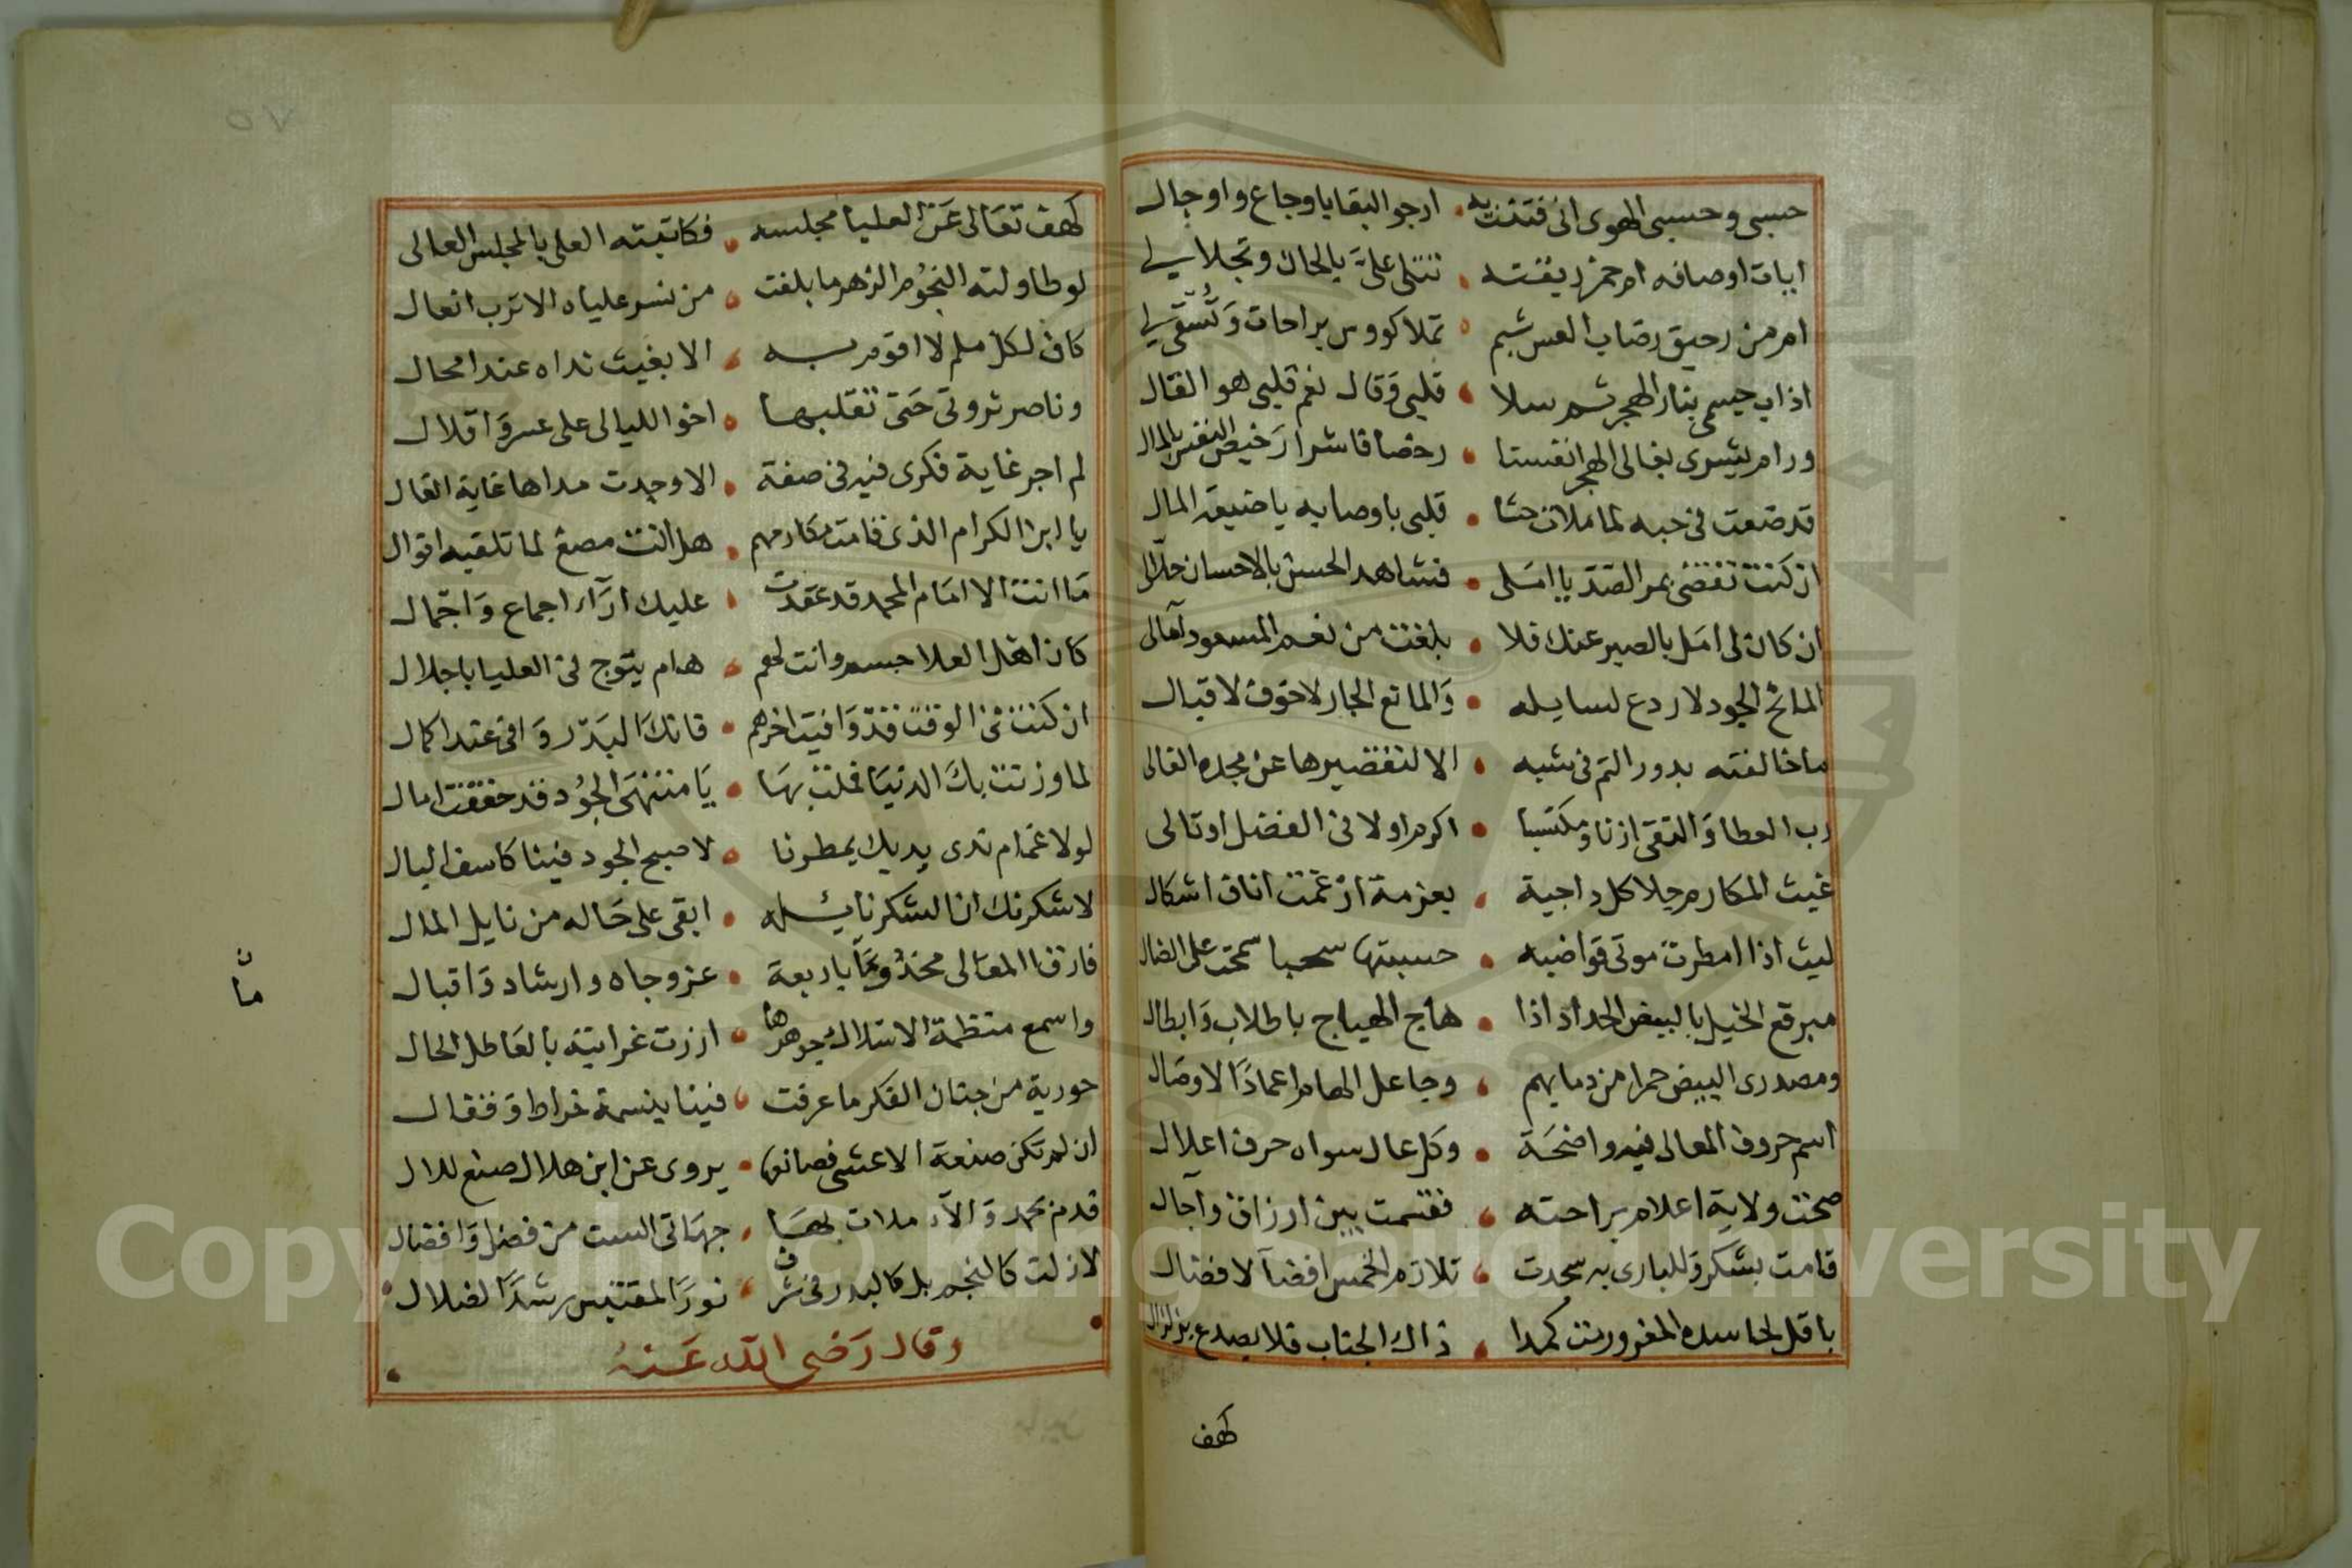 حسبى وحسبى الهوى انى فتنت به • ارجو البقا باوجاع واوجال
ايات اوصافه ام خمر ريقته • تتلى على بالحان وتجلا لى
ام من رحيق رضاب العس شبم • تملا كووس براحات وتسقى لى
اذاب جسمى بنار الهجر ثم سلا • قلبى وقال نعم قلبى هو القال
ورام يشرى بغالى الهجر انفسنا • رخصا فاشرا رخيص النفس بالمال
قد ضعت فى حبه لما ملات حشا • قلبى باوصابه يا ضيعة المال
ان كنت تقضى بمر الصد يا املى • فشاهد الحسن بالاحسان حلالى
ان كان لى امل بالصبر عنك فلا • بلغت من نعم المسعود آمالى
المانح الجود لا ردع لسايله • والمانع الجار لا خوف لاقيال
ما خالفته بدور التم فى شبه • الا لتقصيرها عن مجده العالى
رب العطا والتقى ارثا ومكتسبا • اكرم اولا فى الفضل او تالى
غيث المكارم جلا كل داجية • بعزمة ان غمت افاق اشكال
ليث اذا امطرت موتى قواضبه • حسبتها سحبا سحت على الضال
مبرقع الخيل بالبيض الحداد اذا • هاج الهياج باطلاب وابطال
ومصدرى البيض حمرا من دمايهم • وجاعل الهام اغمادا لاوصال
اسم حروف المعالى فيه واضحة • وكل عال سواه حرف اعلال
صحت ولاية اعلام براحته • فقسمت بين ارزاق وآجال
قامت بشكر وللبارى به سجدت • تلازم الخمس افضآلا فضال
يا قل لحاسده المغرور مت كمدا • ذاك الجناب فلا يصدع بزلزال
كهف
كهف تعالى عن العليا مجلسه • فكاتبته العلى بالمجلس العالى
لو طاولته النجوم الزهر ما بلغت • من نسر علياه الا ترب انعال
كاف لكل ملم لا اقوم به • الا بغيث نداه عند امحال
وناصر ثروتى حتى تقلبها • اخو الليالى على عسر واقلال
لم اجر غاية فكرى فيه فى صفة • الا وجدت مداها غاية القال
يا ابن الكرام الذى قامت مكارمهم • هل انت مصغ لما تلقيه اقوال
ما انت الا امام المجد قد عقدت • عليك ارآء اجماع واجمال
كان اهل العلا جسم وانت لهم • هام يتوج فى العليا باجلال
ان كنت فى الوقت قد وافيت اخرهم • فانك البدر وافى عند اكمال
لما وزنت بك الدنيا فملت بها • يا منتهى الجود قد حققت امال
لولا غمام ندى يديك يمطرنا • لاصبح الجود فينا كاسف البال
لاشكرنك ان الشكر نايله • ابقى على حاله من نايل المال
فارق المعالى مخدوما باربعة • عز وجاه وارشاد واقبال
واسمع منظمة الاسلاك جوهرها • ازرت غرابته بالعاطل الحال
حورية من جنان الفكر ما عرفت • فينا بنسمة خراط وقفال
ان لم تكن صنعة الاعشى فصانعها • يروى عن ابن هلال صنع للال
قد من بحمد وآلآء ملات بها • جهاتى الست من فضل وافضال
لا زلت كالنجم بل كالبدر فى شرف • نورا لمقتبس رشدا لضلال
وقال رضى الله عنه
مآ
٥٧
Copyright © King Saud University